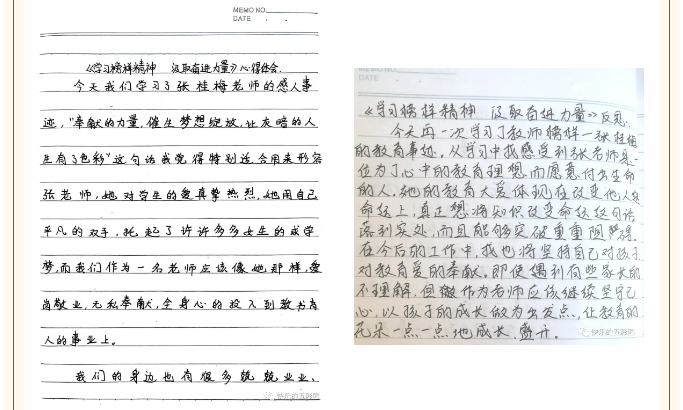 MEMO NO.
DATE
《学习榜样精神 汲取奋进力量》心得体会.
今天我们学习了张桂梅老师的感人事
迹，"奉献的力量，催生梦想绽放，让灰暗的人
生有了色彩"这句话我觉得特别适合用来形容
张老师，她对学生的爱真挚热烈，她用自己
平凡的双手，托起了许许多多女生的求学
梦，而我们作为一名老师应该像她那样，爱
岗敬业，无私奉献，全身心的投入到教书育
人的事业上。
我们的身边也有很多兢兢业业、
快乐的五彩圈
DATE
《学习榜样精神 汲取奋进力量》反思.
今天再一次学习了教师榜样一张桂梅
的教育事迹。从学习中我感受到张老师是一
位为了心中的教育理想而愿意付出生命
的人。她的教育大爱体现在改变他人
命运上，真正想将知识改变命运这句话
落到实处，而且能够突破重重阻碍。
在今后的工作中，我也将坚持自己对孩子
对教育爱的奉献。即使遇到有些家长的
不理解，但作为老师应该继续坚守己
心，以孩子的成长做为出发点，让教育的
花朵一点一点地成长、盛开。
快乐的五彩圈